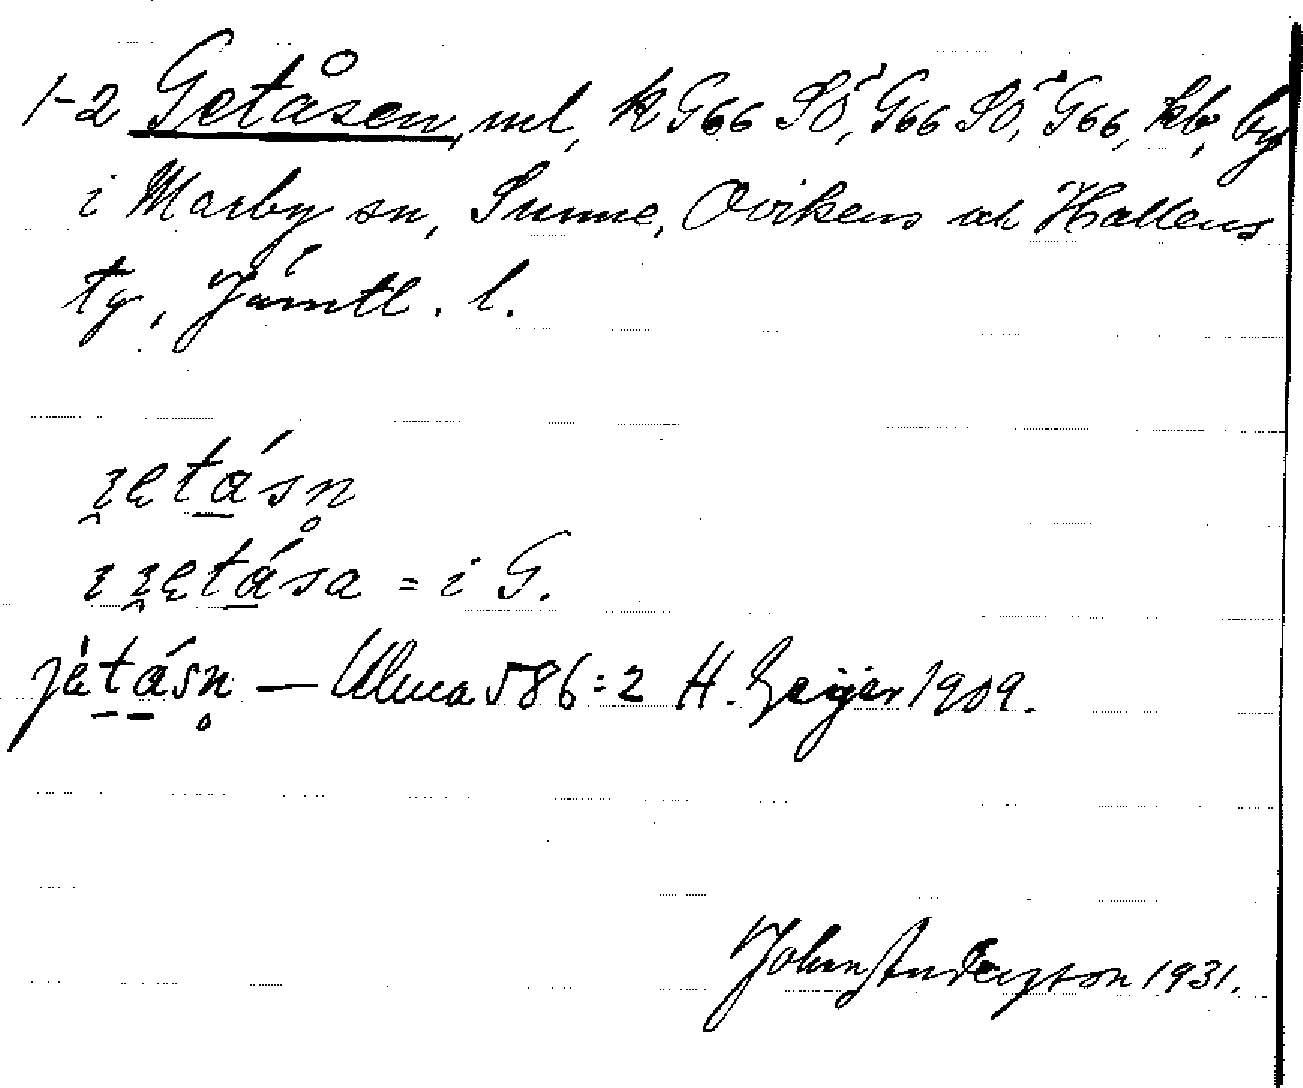 1-2 Getåsen, ml, k G66 SÖ, G66 SÖ, G66, kb, by
i Marby sn, Sunne, Ovikens o Hallens
tg, Jämtl. l.
ȷętásn̥
ı ȷętása = i G.
jètásn̥ — Ulma 586:2 H. Geijer 1909.
John Andersson 1931.